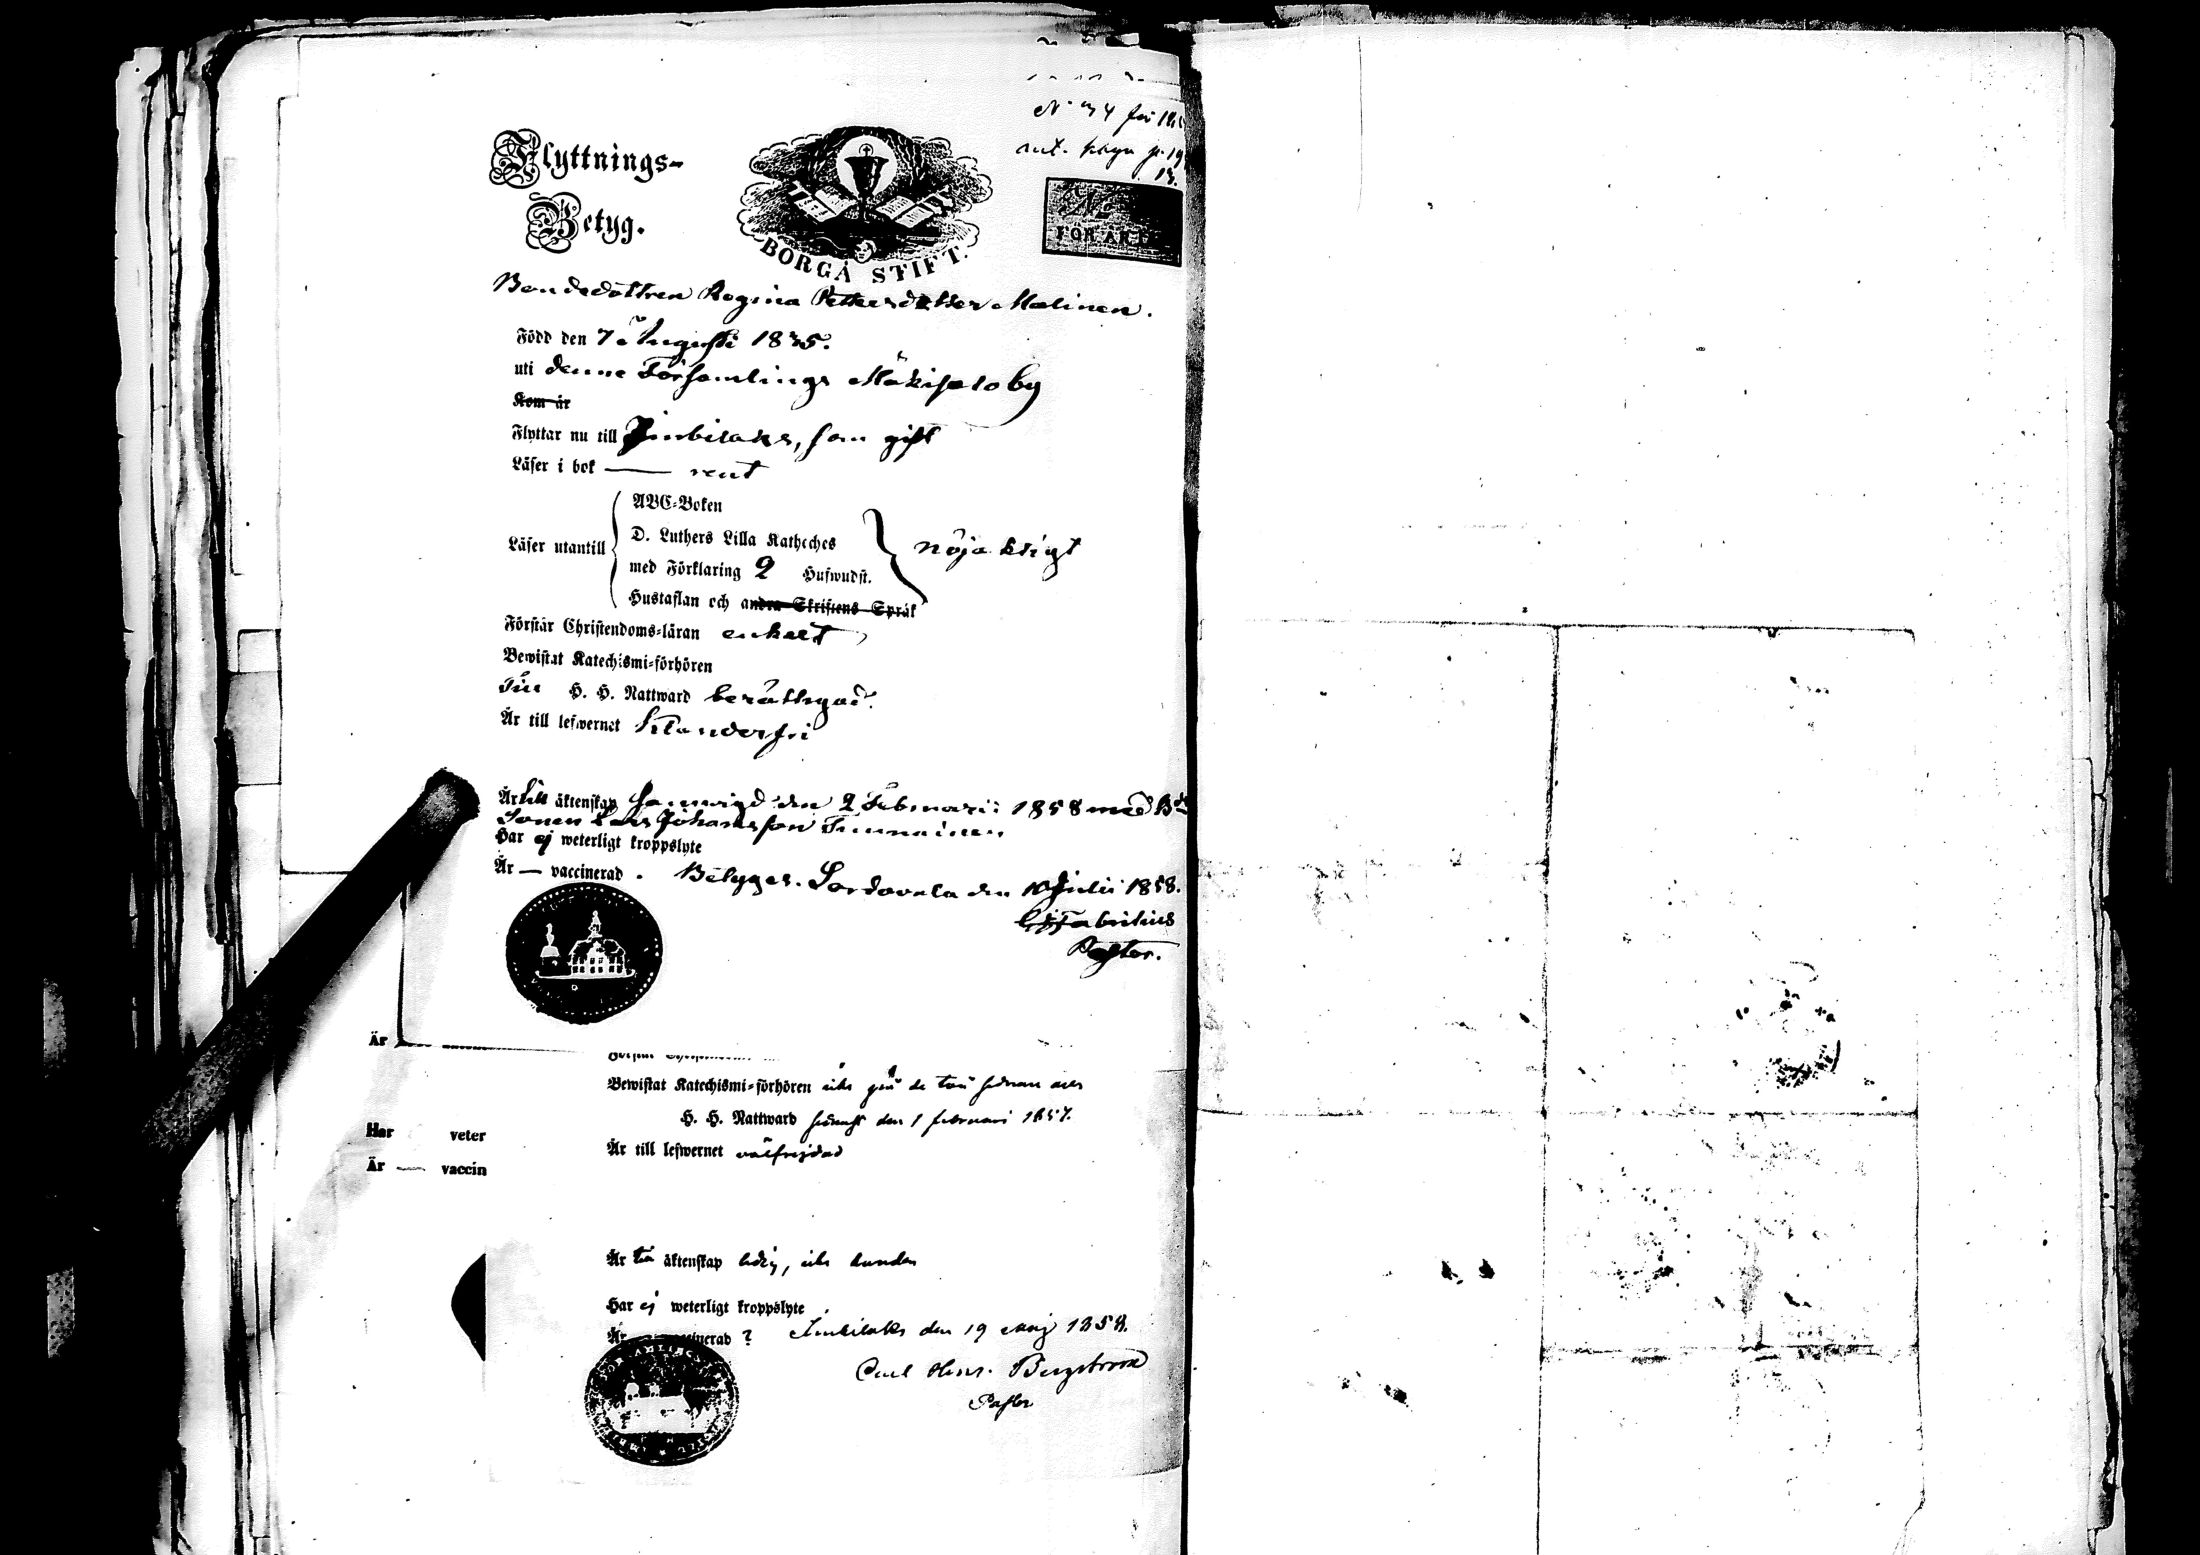 N:o 34 för 185
ant. pag. p. 19
13.
Flyttnings-
Betyg.
BORGÅ STIFT.
FÖR ART
Bondedottren Regina Pettersdotter Malinen.
Född den 7 Augusti 1835.
uti denne Församlings Mäkisalo by
Kom år
Flyttar nu till Imbilaks, som gift
Läser i bok — rent
ABC-Boken
Läser utantill D. Luthers Lilla Katheches nöjaktigt
med Förklaring 2 Hufwudst.
Hustaflan och andra Skriftens Språk
Förstår Christendoms-läran enkelt
Bewistat Katechismi-förhören
Till H. H. Nattward berättigad.
Är till lefwernet klanderfri
Är till äktenskap samwigd den 2 Februarii 1858 med Bde
Sonen Lars Johansson
Har ej weterligt kroppslyte
Är — vaccinerad. Betygas. Sordavala den 10 Julii 1858.
Fabritius
Pastor.
Är
Bewistat Katechismi-förhören
H. H. Nattward sednast den 1 februari 1857.
Har veter
Är till lefwernet välfrejdad
Är — vaccin
Är till äktenskap ledig, icke bunden
Har ej weterligt kroppslyte
Är vaccinerad? Imbilaks den 19 Maj 1858.
Carl Henr. Bergström
Pastor